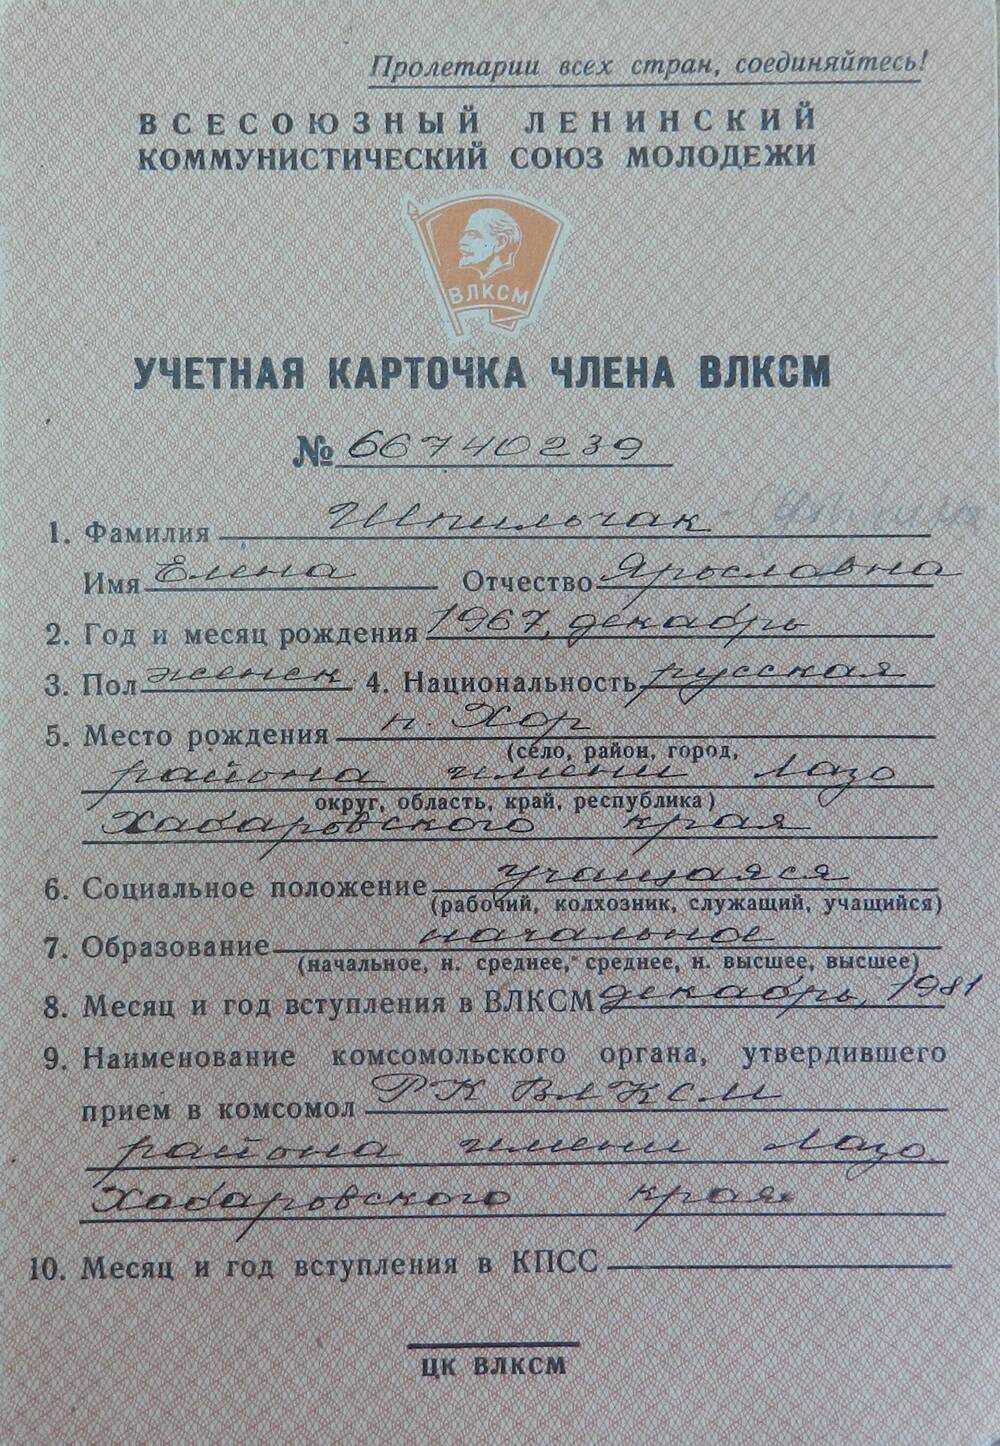 Пролетарии всех стран, соединяйтесь!
ВСЕСОЮЗНЫЙ ЛЕНИНСКИЙ
КОММУНИСТИЧЕСКИЙ СОЮЗ МОЛОДЕЖИ
ВЛКСМ
УЧЕТНАЯ КАРТОЧКА ЧЛЕНА ВЛКСМ
№ 66740239
1. Фамилия Шпильчак
Имя Елена Отчество Ярославна
2. Год и месяц рождения 1967, декабрь
3. Пол женск 4. Национальность русская
5. Место рождения п. Хор
(село, район, город,
района имени Лазо
округ, область, край, республика)
Хабаровского края
6. Социальное положение учащаяся
(рабочий, колхозник, служащий, учащийся)
7. Образование начальное
(начальное, н. среднее, среднее, н. высшее, высшее)
8. Месяц и год вступления в ВЛКСМ декабрь, 1981
9. Наименование комсомольского органа, утвердившего
прием в комсомол РК ВЛКСМ
района имени Лазо
Хабаровского края
10. Месяц и год вступления в КПСС
ЦК ВЛКСМ